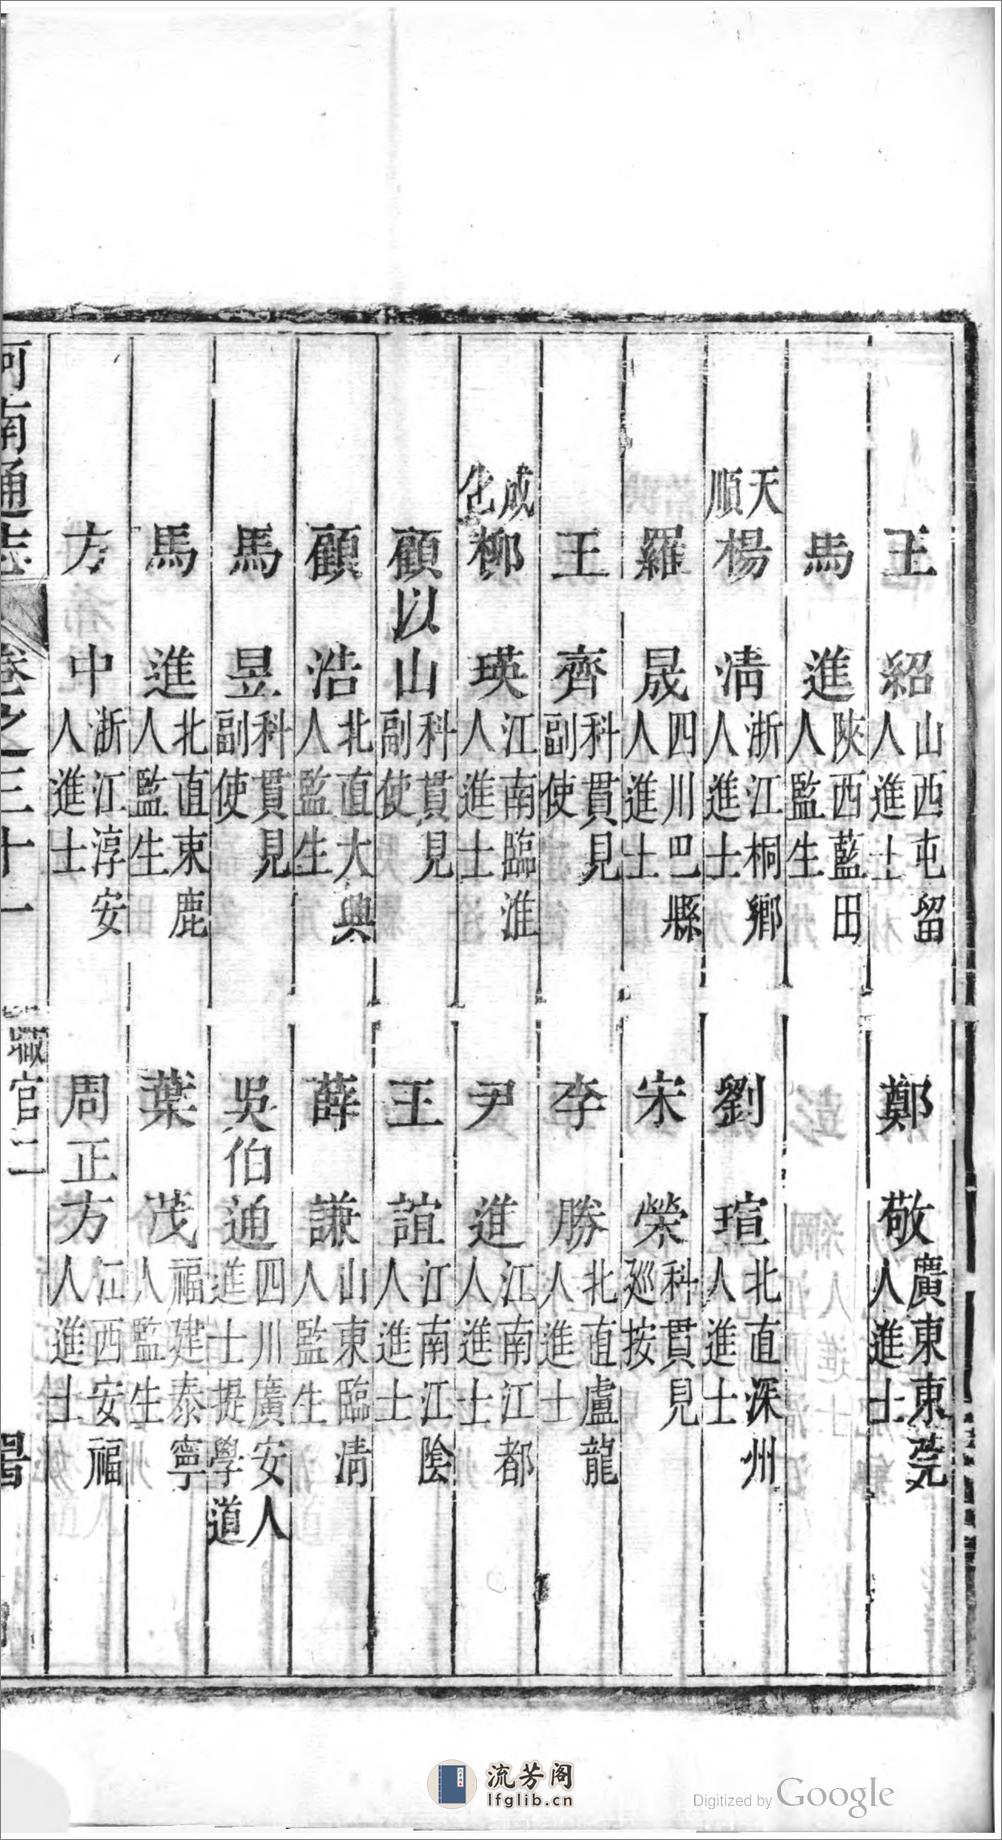 王紹山西屯留人進士
鄭敬廣東東莞人進士
馬進陝西藍田人監生
天順
楊清浙江桐鄉人進士
劉瑄北直深州人進士
羅晟四川巴縣人進士
宋榮科貫見巡按
王齊科貫見副使
李勝北直盧龍人進士
成化
柳瑛江南臨淮人進士
尹進江南江都人進士
顧以山科貫見副使
王誼江南江陰人進士
顧浩北直大興人監生
薛謙山東臨清人監生
馬昱科貫見副使
吳伯通四川廣安人進士提學道
馬進北直束鹿人監生
葉茂福建泰寧人監生
方中浙江淳安人進士
周正方江西安福人進士
河南通志
卷之三十一
職官二
流芳阁
lfglib.cn
Digitized by Google